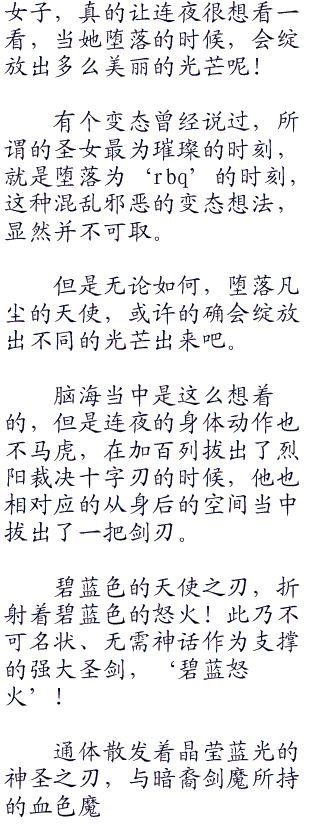 女子，真的让连夜很想看一
看，当她堕落的时候，会绽
放出多么美丽的光芒呢！
有个变态曾经说过，所
谓的圣女最为璀璨的时刻，
就是堕落为‘rbq’的时刻，
这种混乱邪恶的变态想法，
显然并不可取。
但是无论如何，堕落凡
尘的天使，或许的确会绽放
出不同的光芒出来吧。
脑海当中是这么想着
的，但是连夜的身体动作也
不马虎，在加百列拔出了烈
阳裁决十字刃的时候，他也
相对应的从身后的空间当中
拔出了一把剑刃。
碧蓝色的天使之刃，折
射着碧蓝色的怒火！此乃不
可名状、无需神话作为支撑
的强大圣剑，‘碧蓝怒
火’！
通体散发着晶莹蓝光的
神圣之刃，与暗裔剑魔所持
的血色魔